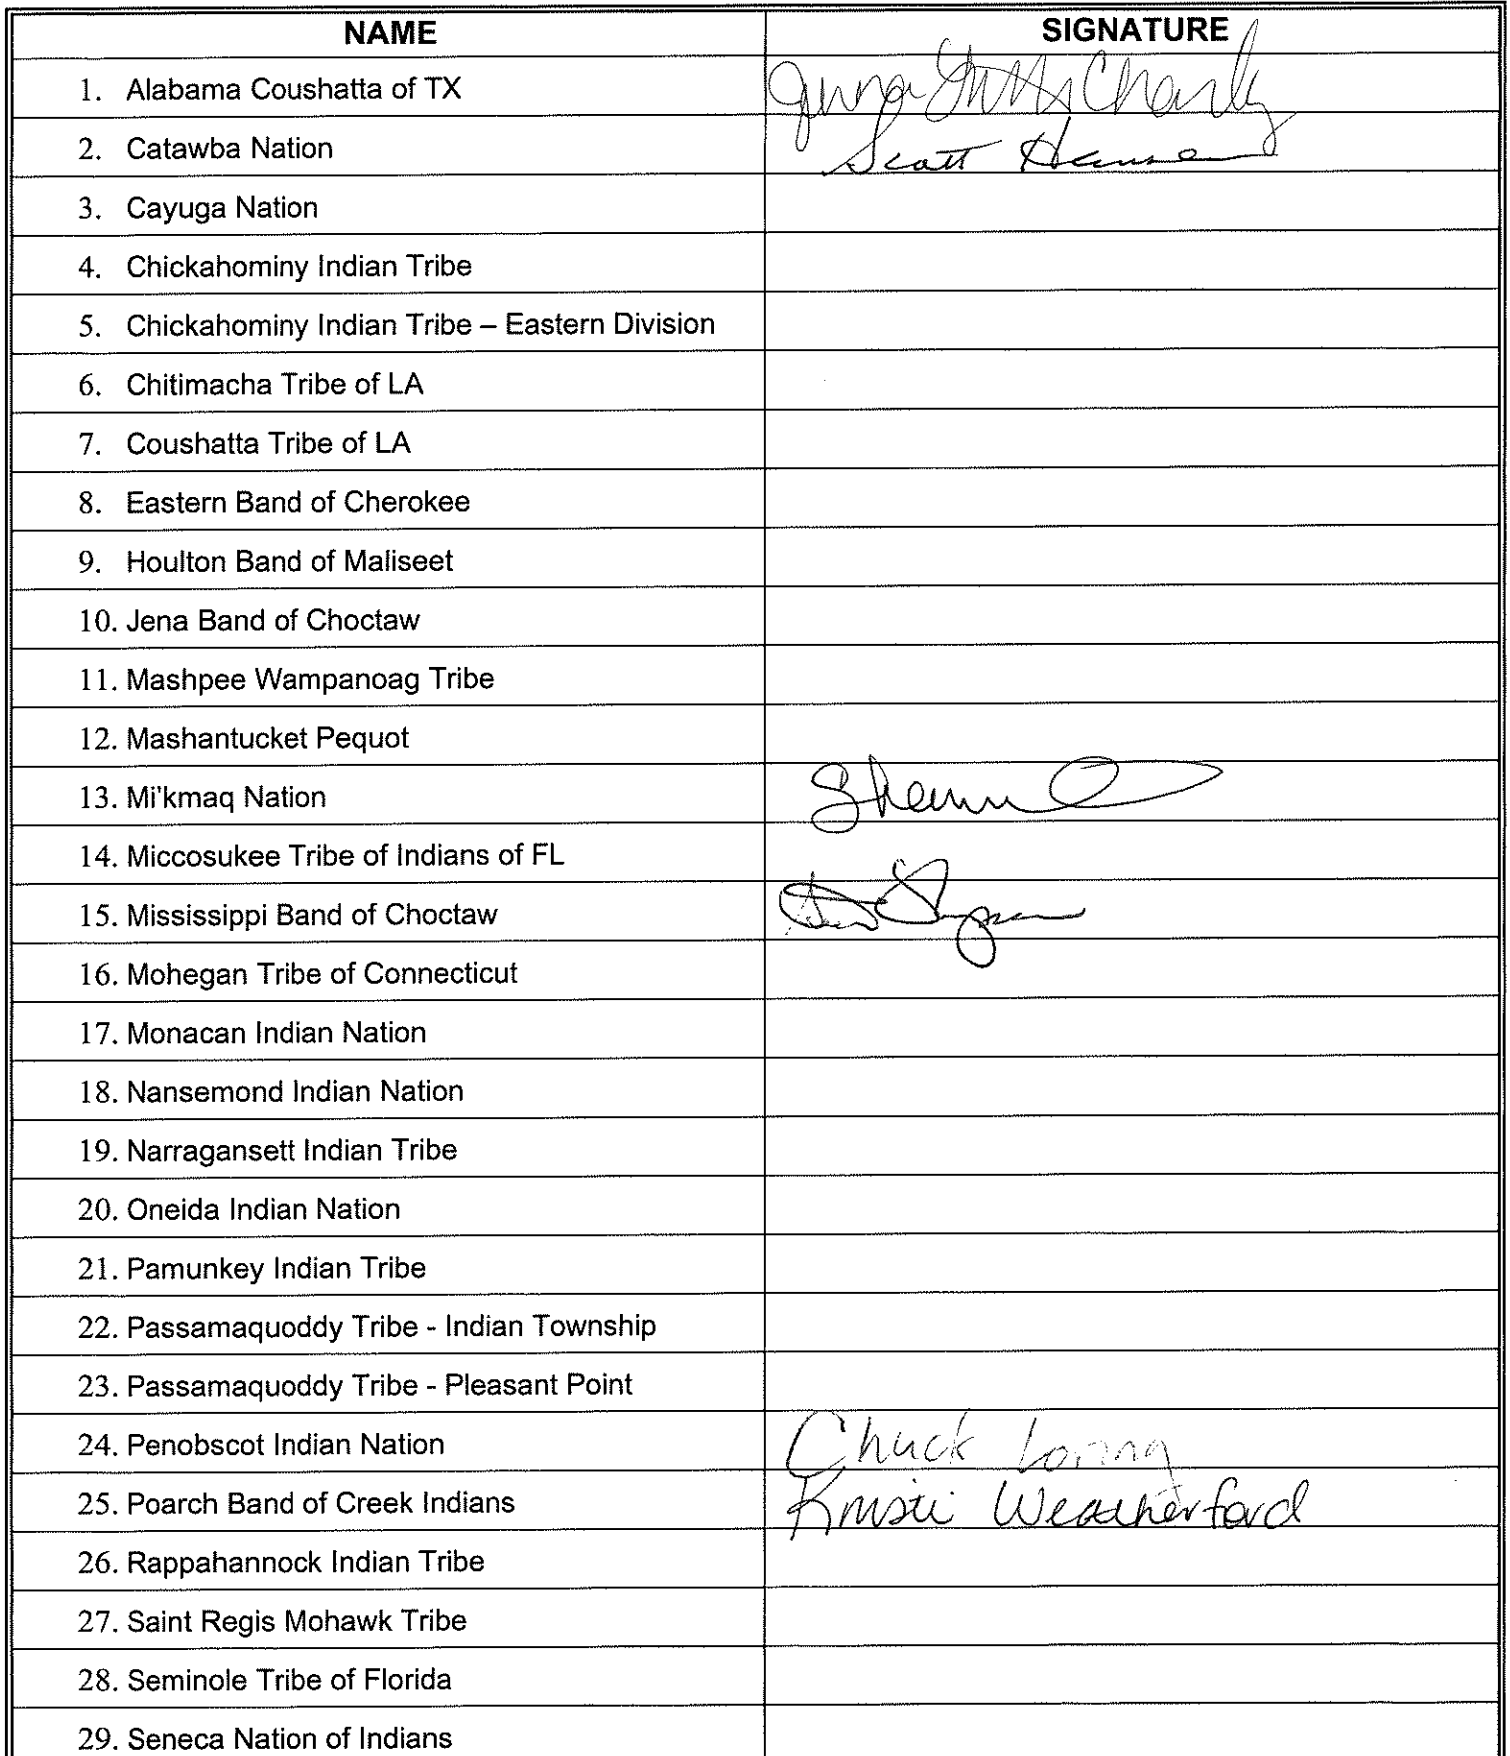 NAME SIGNATURE
1. Alabama Coushatta of TX
2. Catawba Nation Scott
3. Cayuga Nation
4. Chickahominy Indian Tribe
5. Chickahominy Indian Tribe – Eastern Division
6. Chitimacha Tribe of LA
7. Coushatta Tribe of LA
8. Eastern Band of Cherokee
9. Houlton Band of Maliseet
10. Jena Band of Choctaw
11. Mashpee Wampanoag Tribe
12. Mashantucket Pequot
13. Mi'kmaq Nation
14. Miccosukee Tribe of Indians of FL
15. Mississippi Band of Choctaw
16. Mohegan Tribe of Connecticut
17. Monacan Indian Nation
18. Nansemond Indian Nation
19. Narragansett Indian Tribe
20. Oneida Indian Nation
21. Pamunkey Indian Tribe
22. Passamaquoddy Tribe - Indian Township
23. Passamaquoddy Tribe - Pleasant Point
24. Penobscot Indian Nation Chuck Loring
25. Poarch Band of Creek Indians Kristi Weatherford
26. Rappahannock Indian Tribe
27. Saint Regis Mohawk Tribe
28. Seminole Tribe of Florida
29. Seneca Nation of Indians